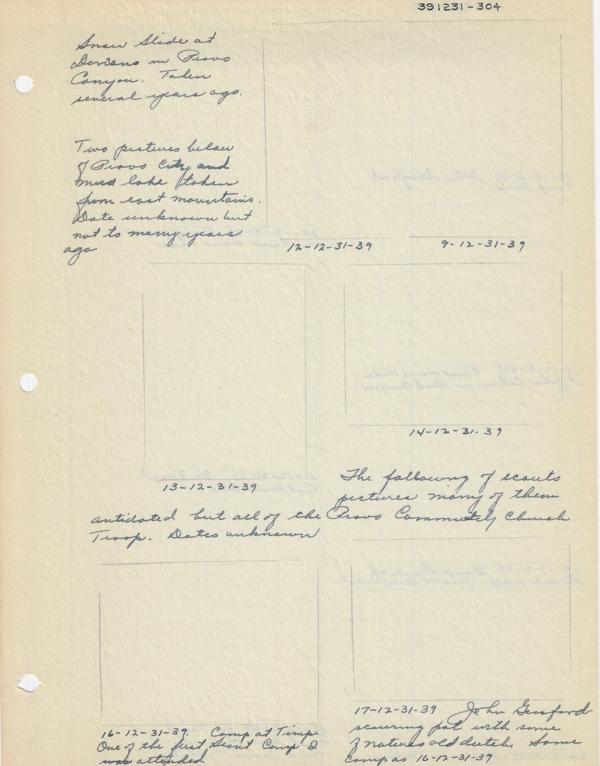 391231-304
Snow Slide at
Devions in Provo
Canyon. Taken
several years ago.
Two pictures below
of Provo City and
mud lake taken
from east mountains.
Date unknown but
not to many years
ago
12-12-31-39
9-12-31-39
14-12-31-39
13-12-31-39
The following of scouts
pictures many of them
antidated but all of the Provo Community Church
Troop. Dates unknown
16-12-31-39. Camp at Timp.
One of the first Scout Camp I
was attended
17-12-31-39 John
scouring pot with some
of natures old dutch. Same
Camp as 16-12-31-39